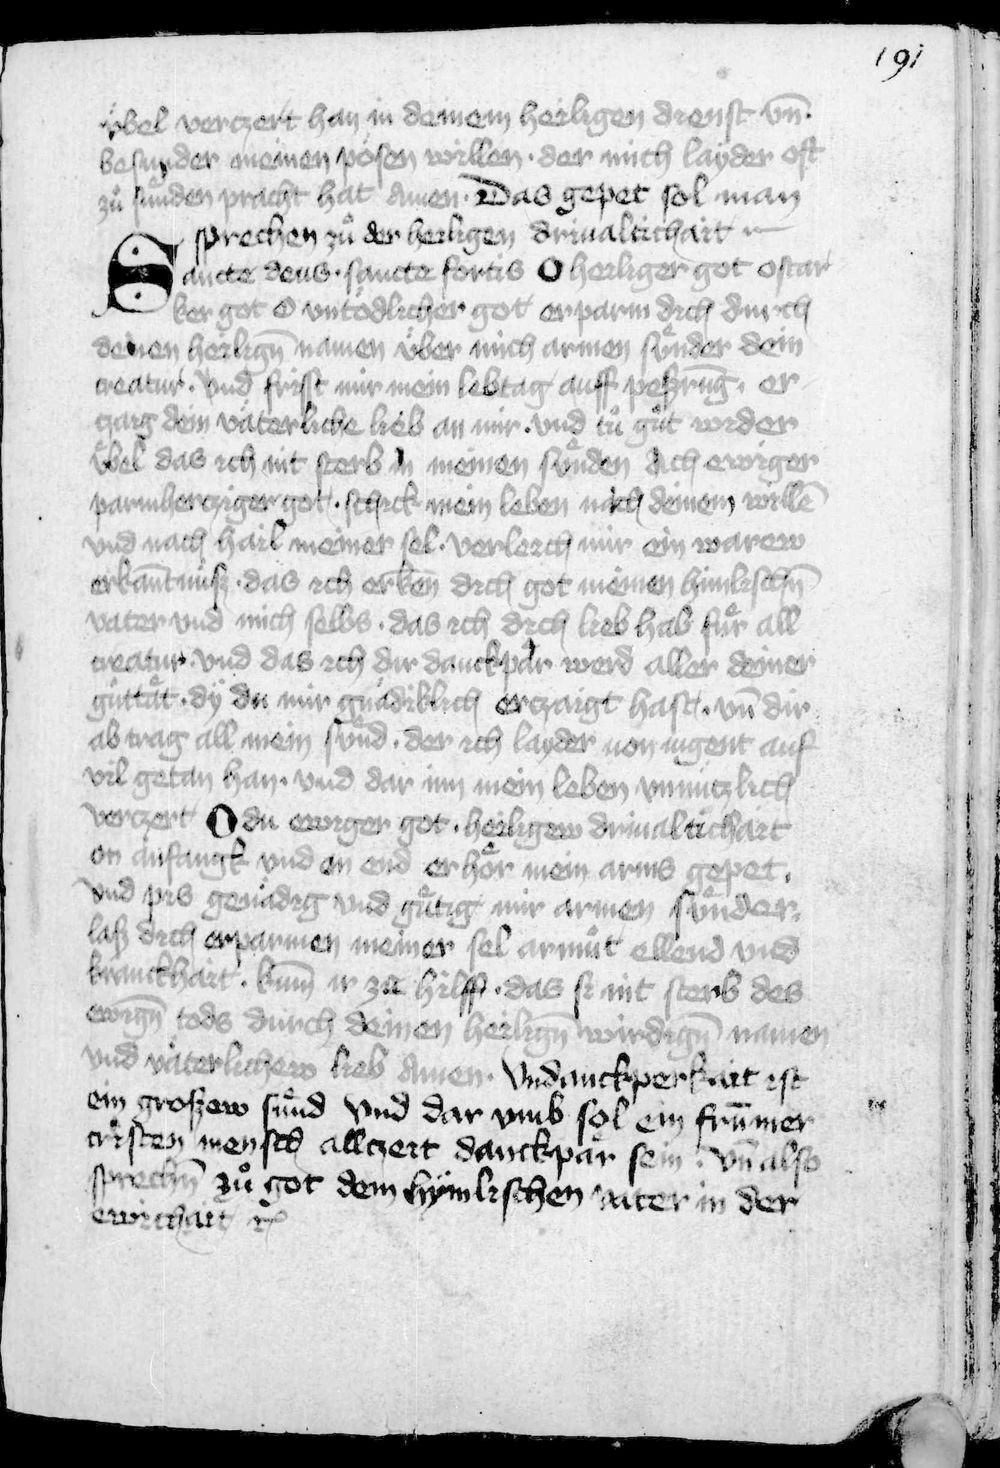 191
übel verczert han in deinem heiligen dienst vn̄.
besunder meinen pösen willen · der mich layder oft
zů sünden pracht hat Amen · Das gepet sol man
sprechen zů der heiligen driualtichait
Sancte deus · sancte fortis O heiliger got o star
ker got O vntödlicher got erparm dich durch
deinen heilign̄ namen über mich armen sünder dein
creatur · vnd frist mir mein lebtag auff peßrūg · er
czaig dein väterliche lieb an mir · vnd tů gůt wider
übel das ich nit sterb in meinen sünden Ach ewiger
parmhercziger got · schick mein leben nach deinem willē
vnd nach hail meiner sel · verleich mir ein warew
erkāntnüß · das ich erkēn dich got meinen himlischn̄
vater vnd mich selbs · das ich dich lieb hab für all
creatur · vnd das ich dir danckpär werd aller deiner
gůttät · dÿ du mir gnädiklich erczaigt hast · vn̄ dir
ab trag all mein sünd · der ich layder von iugent auf
vil getan han · vnd dar inn mein leben vnnützlich
verczert O du ewiger got · heiligew driualtichait
on anfangk vnd on end erhör mein arms gepet ·
vnd pis genädig vnd gütig mir armen sünder ·
laß dich erparmen meiner sel armůt ellend vnd
kranckhait · kum̄ ir zu hilff · das si nit sterb des
ewign̄ tods durch deinen heilign̄ wirdign̄ namen
vnd väterlichew lieb Amen · Vndanckperkait ist
ein großew sünd vnd dar vmb sol ein frūmer
cristen mensch allczeit danckpär sein · vn̄ also
sprechn̄ zů got dem hÿmlischen vater in der
ewichait